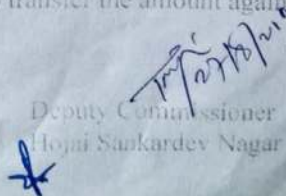 transfer the amount again
27/8/21
Deputy Commissioner
Hojai Sankardev Nagar